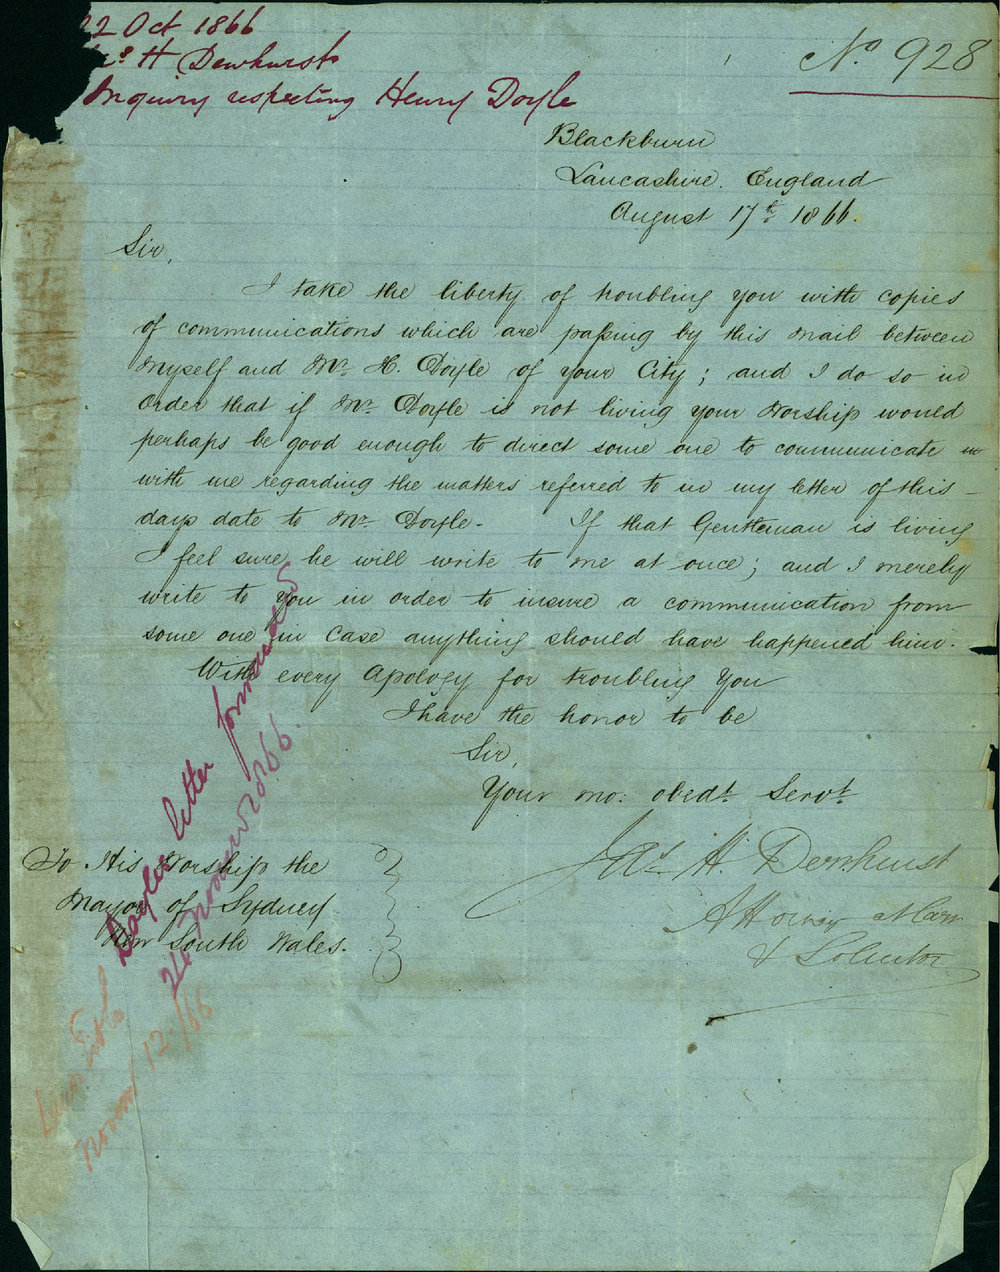 22 Oct 1866
H Dewhurst
Inquiry respecting Henry Doyle
No. 928
Blackburn
Lancashire, England
August 17th 1866.
Sir,
I take the liberty of troubling you with copies
of communications which are passing by this mail between
myself and Mr. H. Doyle of your City; and I do so in
order that if Mr. Doyle is not living your Worship would
perhaps be good enough to direct some one to communicate
with me regarding the matters referred to in my letter of this
days date to Mr. Doyle. If that Gentleman is living
I feel sure he will write to me at once; and I merely
write to you in order to insure a communication from
some one in case anything should have happened him.
With every Apology for troubling You
I have the honor to be
Sir,
Your mo: obedt. Servt.
Jas H. Dewhurst
Attorney at Law
& Solicitor
To His Worship the
Mayor of Sydney
New South Wales.
Doyles letter forwarded